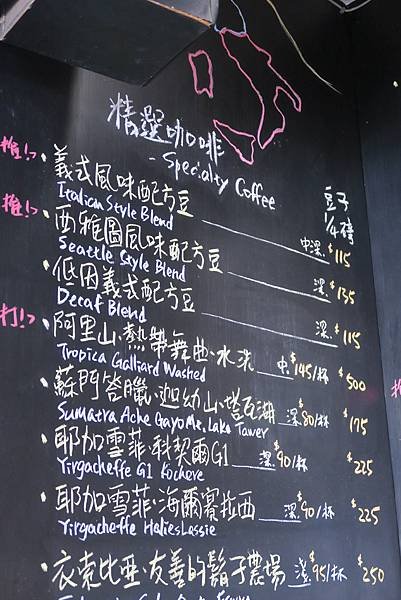 精選咖啡
- Specialty Coffee
豆子
1/4磅
推!›
義式風味配方豆 中深. $115
Italian Style Blend
推!›
西雅圖風味配方豆 深. $135
Seattle Style Blend
低因義式配方豆 深. $115
Decaf Blend
打!›
阿里山、熱帶舞曲、水洗 中. $145/杯 $500
Tropica Galliard Washed
蘇門答臘、迦幼山、塔瓦湖 深. $80/杯 $175
Sumatra Ache Gayo Mt. Lake Tawer
耶加雪菲、科契爾G1 淺. $90/杯 $225
Yirgacheffe G1 Kochere
耶加雪菲、海爾賽拉西 淺. $90/杯 $225
Yirgacheffe HaileSelassie
衣索比亞、友善的鬍子農場 淺 $95/杯 $250